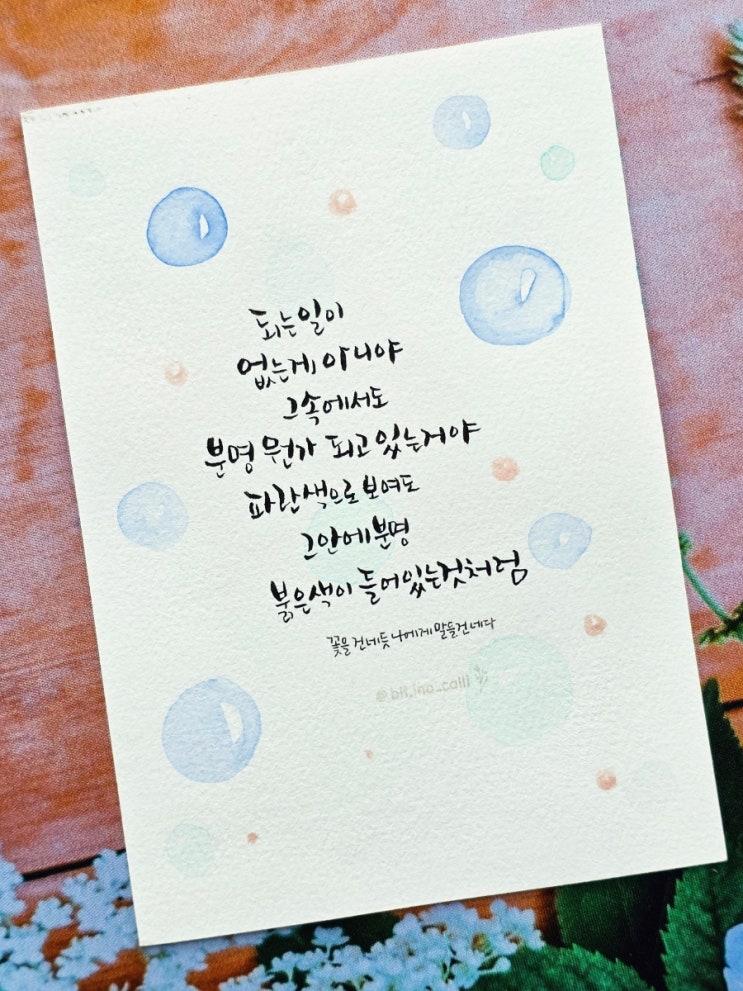 되는 일이
없는게 아니야
그 속에서도
분명 뭔가 되고 있는거야
파란색으로 보여도
그 안에 분명
붉은색이 들어있는것처럼
꽃을 건네듯 나에게 말을 건네다
@bit.ino_calli